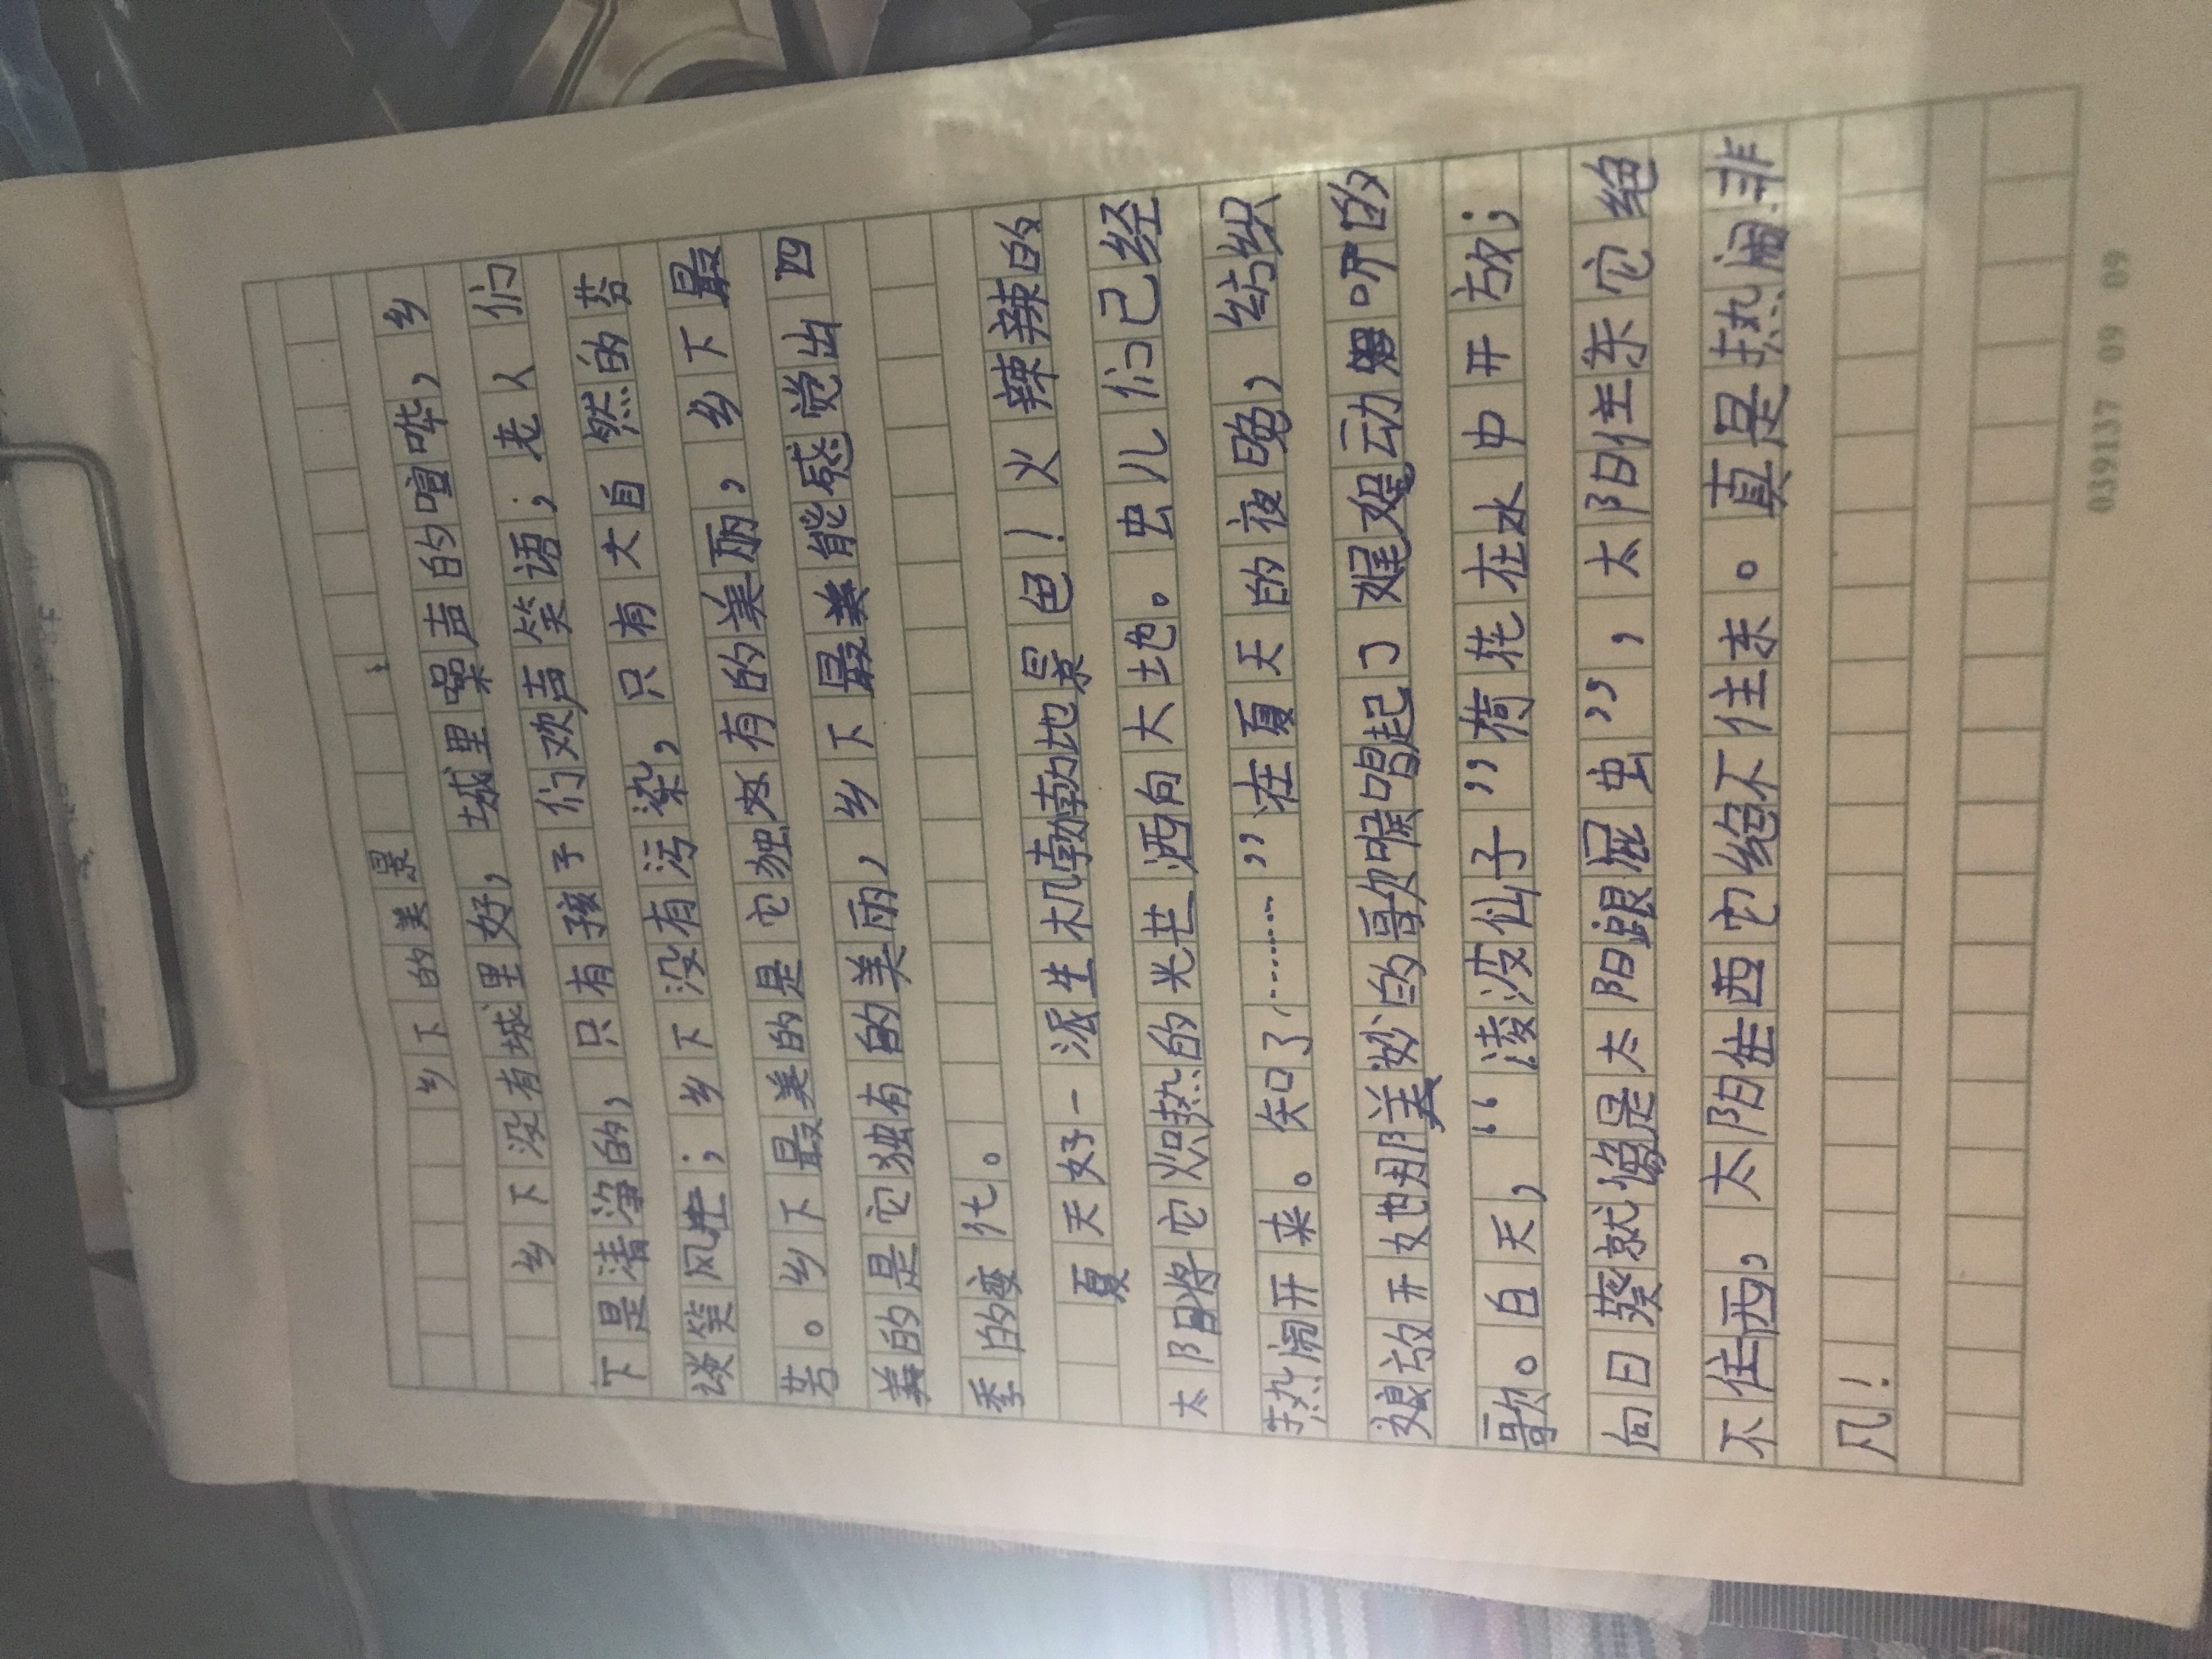 乡下的美景
乡下没有城里好，城里噪声的喧哗，乡
下是清净的，只有孩子们欢声笑语；老人们
谈笑风生；乡下没有污染，只有大自然的芬
芳。乡下最美的是它独有的美丽，乡下最
美的是它独有的美丽，乡下最美能感觉出四
季的变化。
夏天好一派生机勃勃地景色！火辣辣的
太阳将它炽热的光芒洒向大地。虫儿们已经
热闹开来。知了………"在夏天的夜晚，纺织
娘放开她那美妙的歌喉唱起了娓娓动听的
歌。白天，"凌波仙子"荷花在水中开放；
向日葵就像是太阳跟屁虫"，太阳往东它绝
不往西，太阳往西它绝不往东。真是热闹非
凡！
039137 09 09